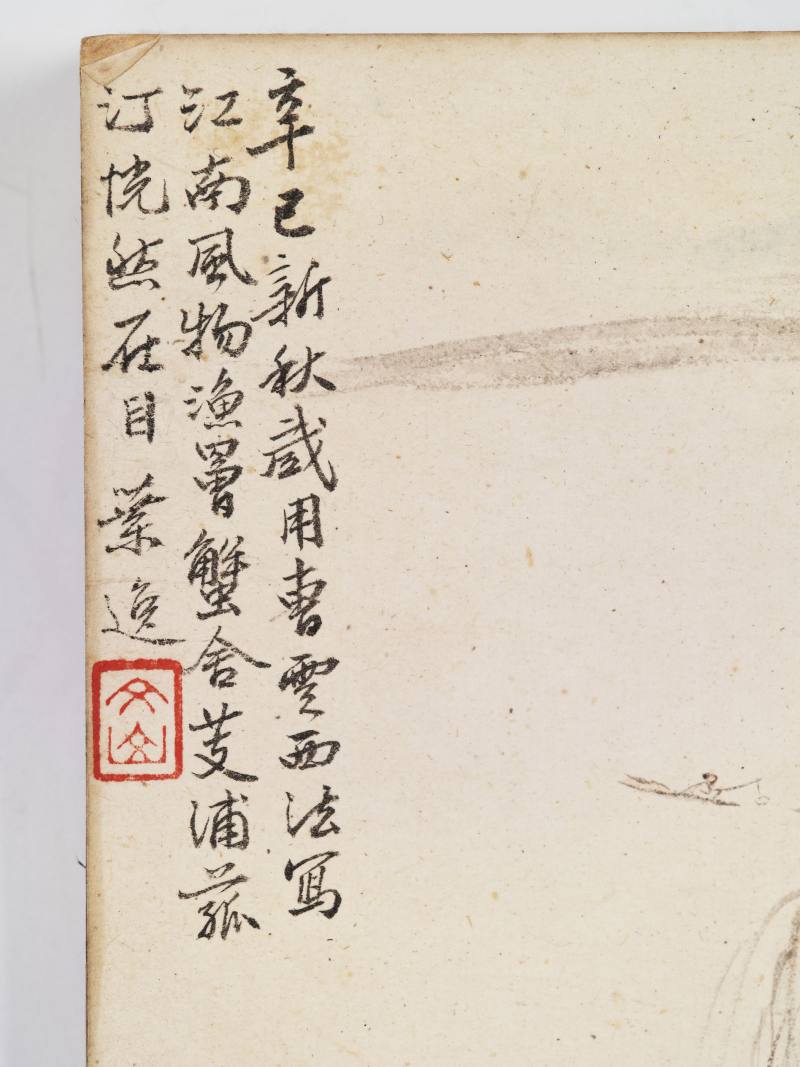 辛巳新秋戲用曹雲西法寫
江南風物漁罾蟹舍芰浦菰
汀恍然在目葉逸